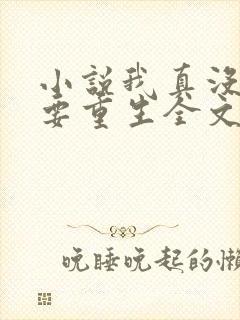 小说我真没
要重生全文
晚睡晚起的懒